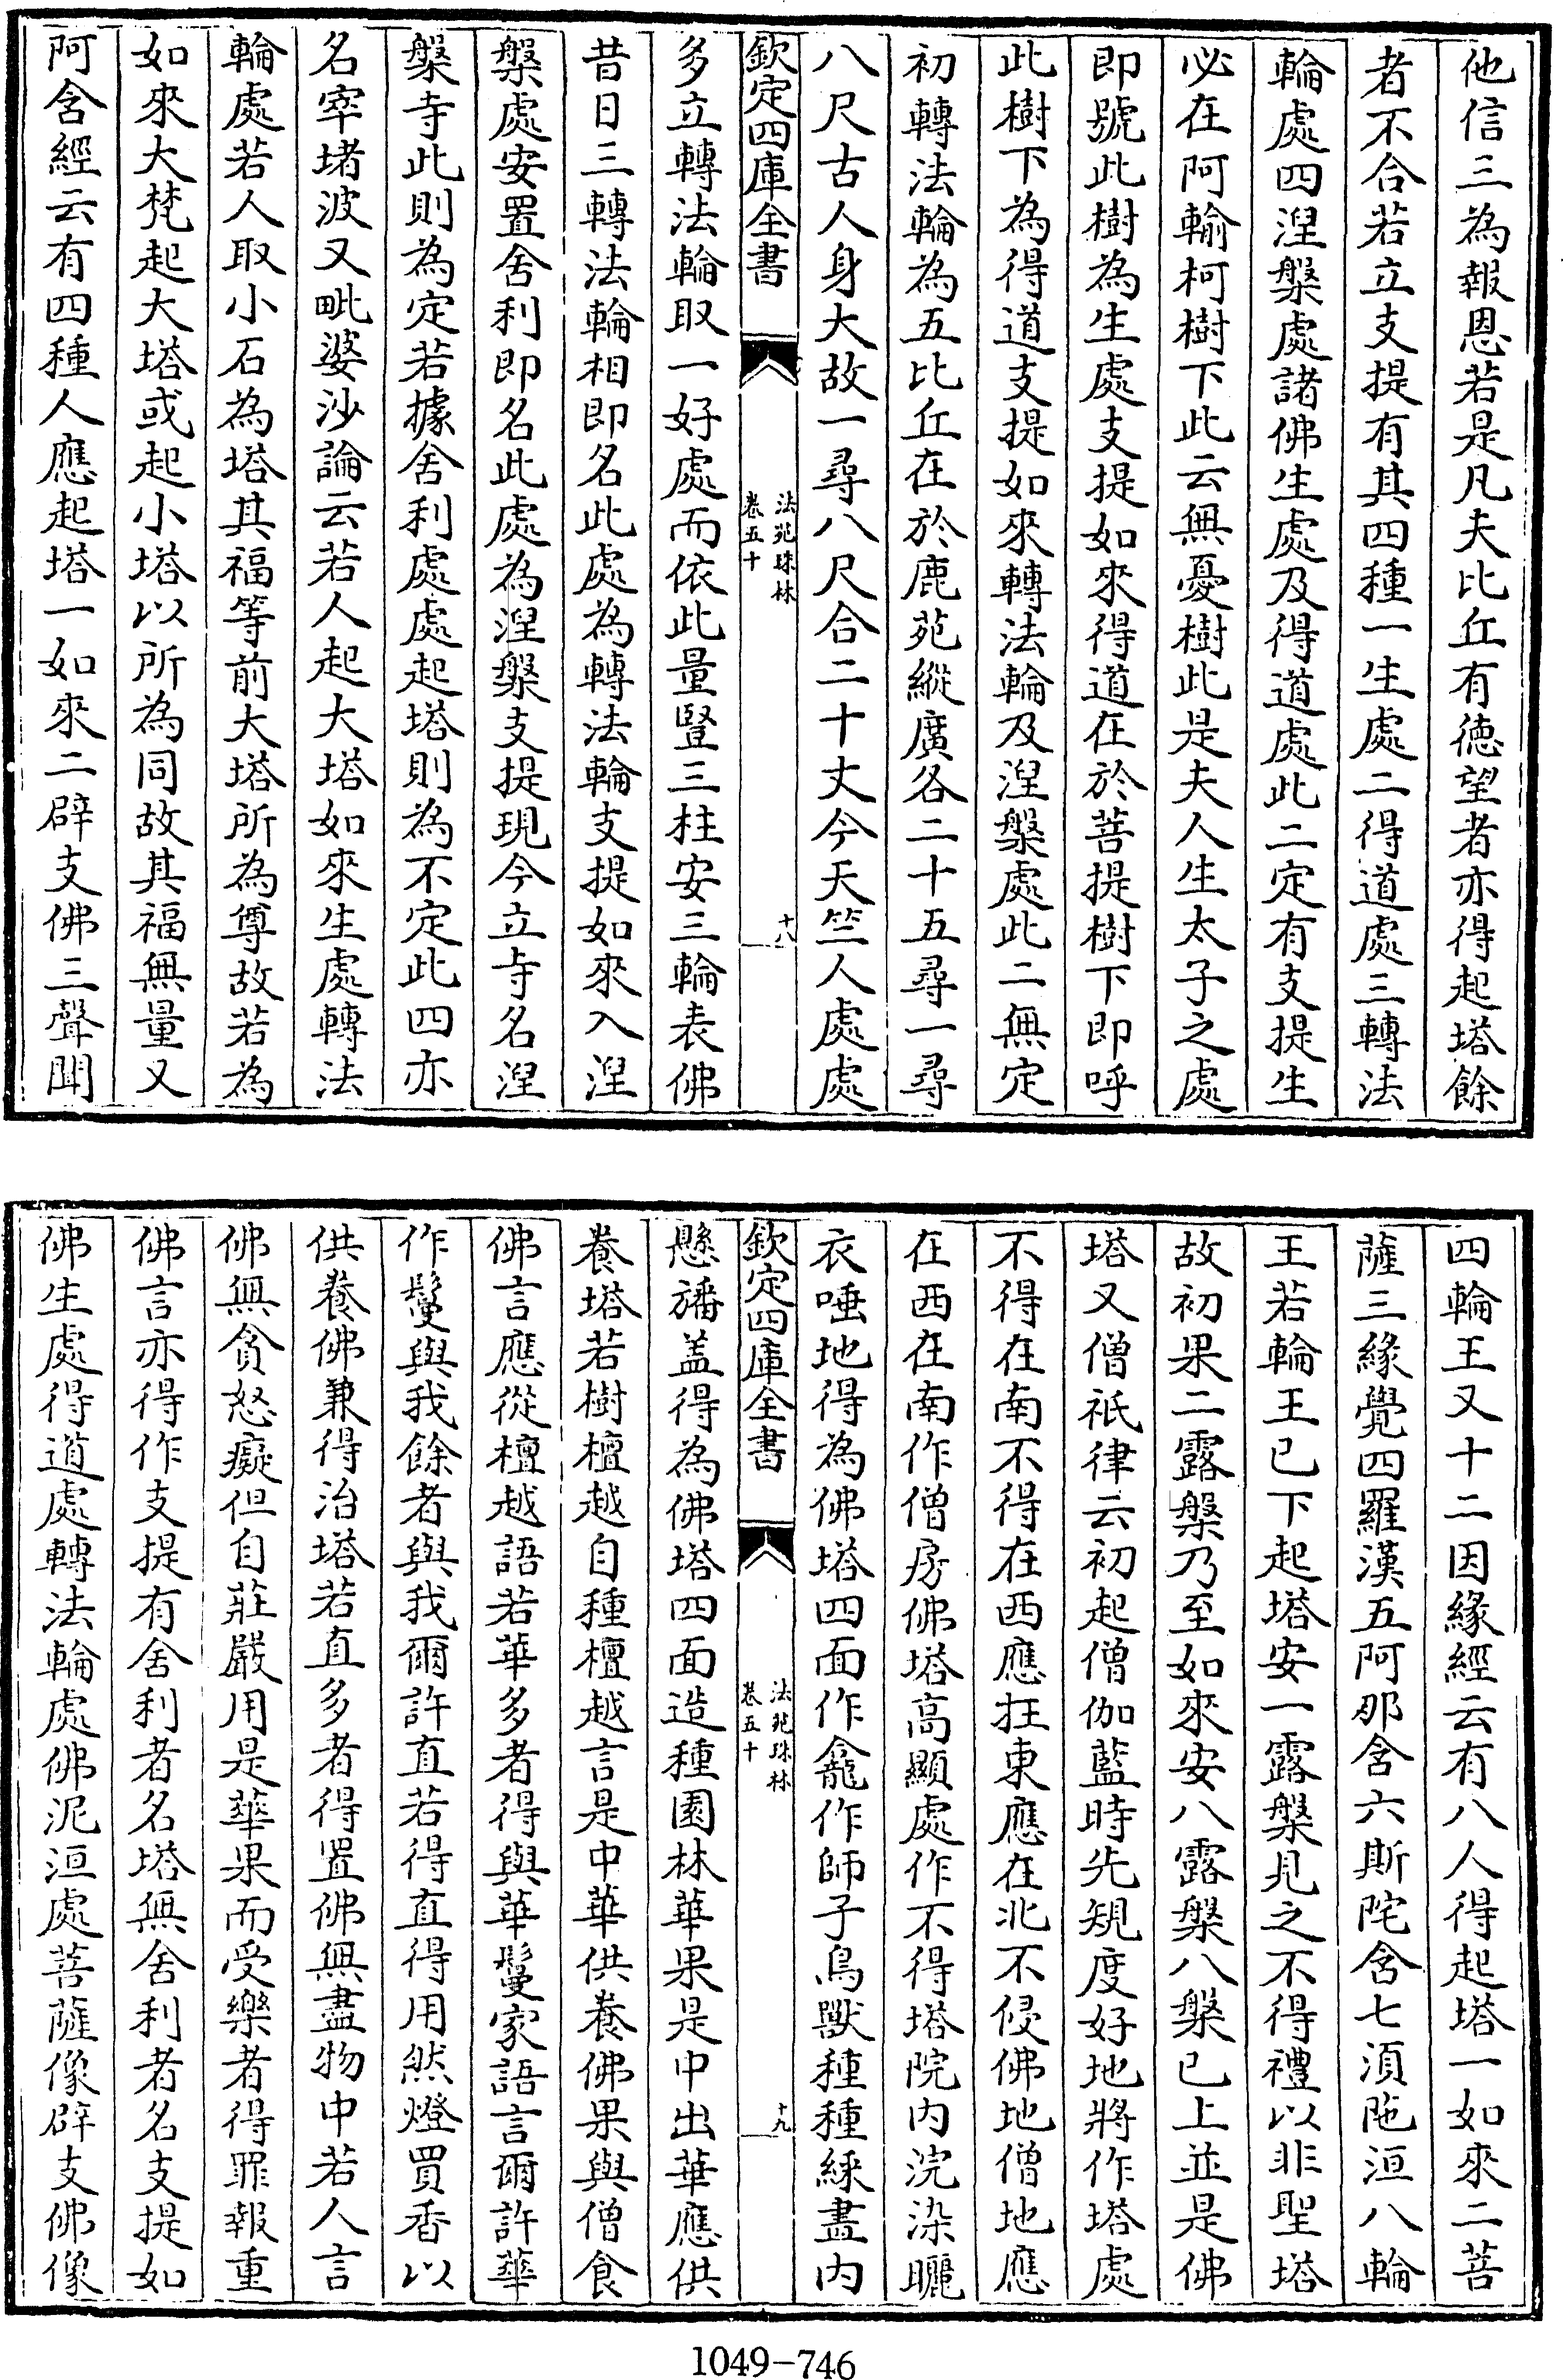 他信三為報恩若是凡夫比丘有徳望者亦得起塔餘
者不合若立支提有其四種一生處二得道處三轉法
輪處四涅槃處諸佛生處及得道處此二定有支提生
必在阿輸柯樹下此云無憂樹此是夫人生太子之處
即號此樹為生處支提如來得道在於菩提樹下即呼
此樹下為得道支提如來轉法輪及涅槃處此二無定
初轉法輪為五比丘在於鹿苑縱廣各二十五尋一尋
八尺古人身大故一尋八尺合二十丈今天竺人處處
欽定四庫全書
法苑珠林
卷五十
十八
多立轉法輪取一好處而依此量豎三柱安三輪表佛
昔日三轉法輪相即名此處為轉法輪支提如來入涅
槃處安置舍利即名此處為涅槃支提現今立寺名涅
槃寺此則為定若據舍利處處起塔則為不定此四亦
名窣堵波又毗婆沙論云若人起大塔如來生處轉法
輪處若人取小石為塔其福等前大塔所為尊故若為
如來大梵起大塔或起小塔以所為同故其福無量又
阿含經云有四種人應起塔一如來二辟支佛三聲聞
四輪王又十二因緣經云有八人得起塔一如來二菩
薩三緣覺四羅漢五阿那含六斯陀含七須陁洹八輪
王若輪王已下起塔安一露槃見之不得禮以非聖塔
故初果二露槃乃至如來安八露槃八槃已上並是佛
塔又僧祇律云初起僧伽藍時先規度好地將作塔處
不得在南不得在西應在東應在北不侵佛地僧地應
在西在南作僧房佛塔高顯處作不得塔院內浣染曬
衣唾地得為佛塔四面作龕作師子鳥獸種種綵畫內
欽定四庫全書
法苑珠林
卷五十
十九
懸旛蓋得為佛塔四面造種園林華果是中出華應供
養塔若樹檀越自種檀越言是中華供養佛果與僧食
佛言應從檀越語若華多者得與華鬘家語言爾許華
作鬘與我餘者與我爾許直若得直得用然燈買香以
供養佛兼得治塔若直多者得置佛無盡物中若人言
佛無貪怒癡但自莊嚴用是華果而受樂者得罪報重
佛言亦得作支提有舍利者名塔無舍利者名支提如
佛生處得道處轉法輪處佛泥洹處菩薩像辟支佛像
1049-746